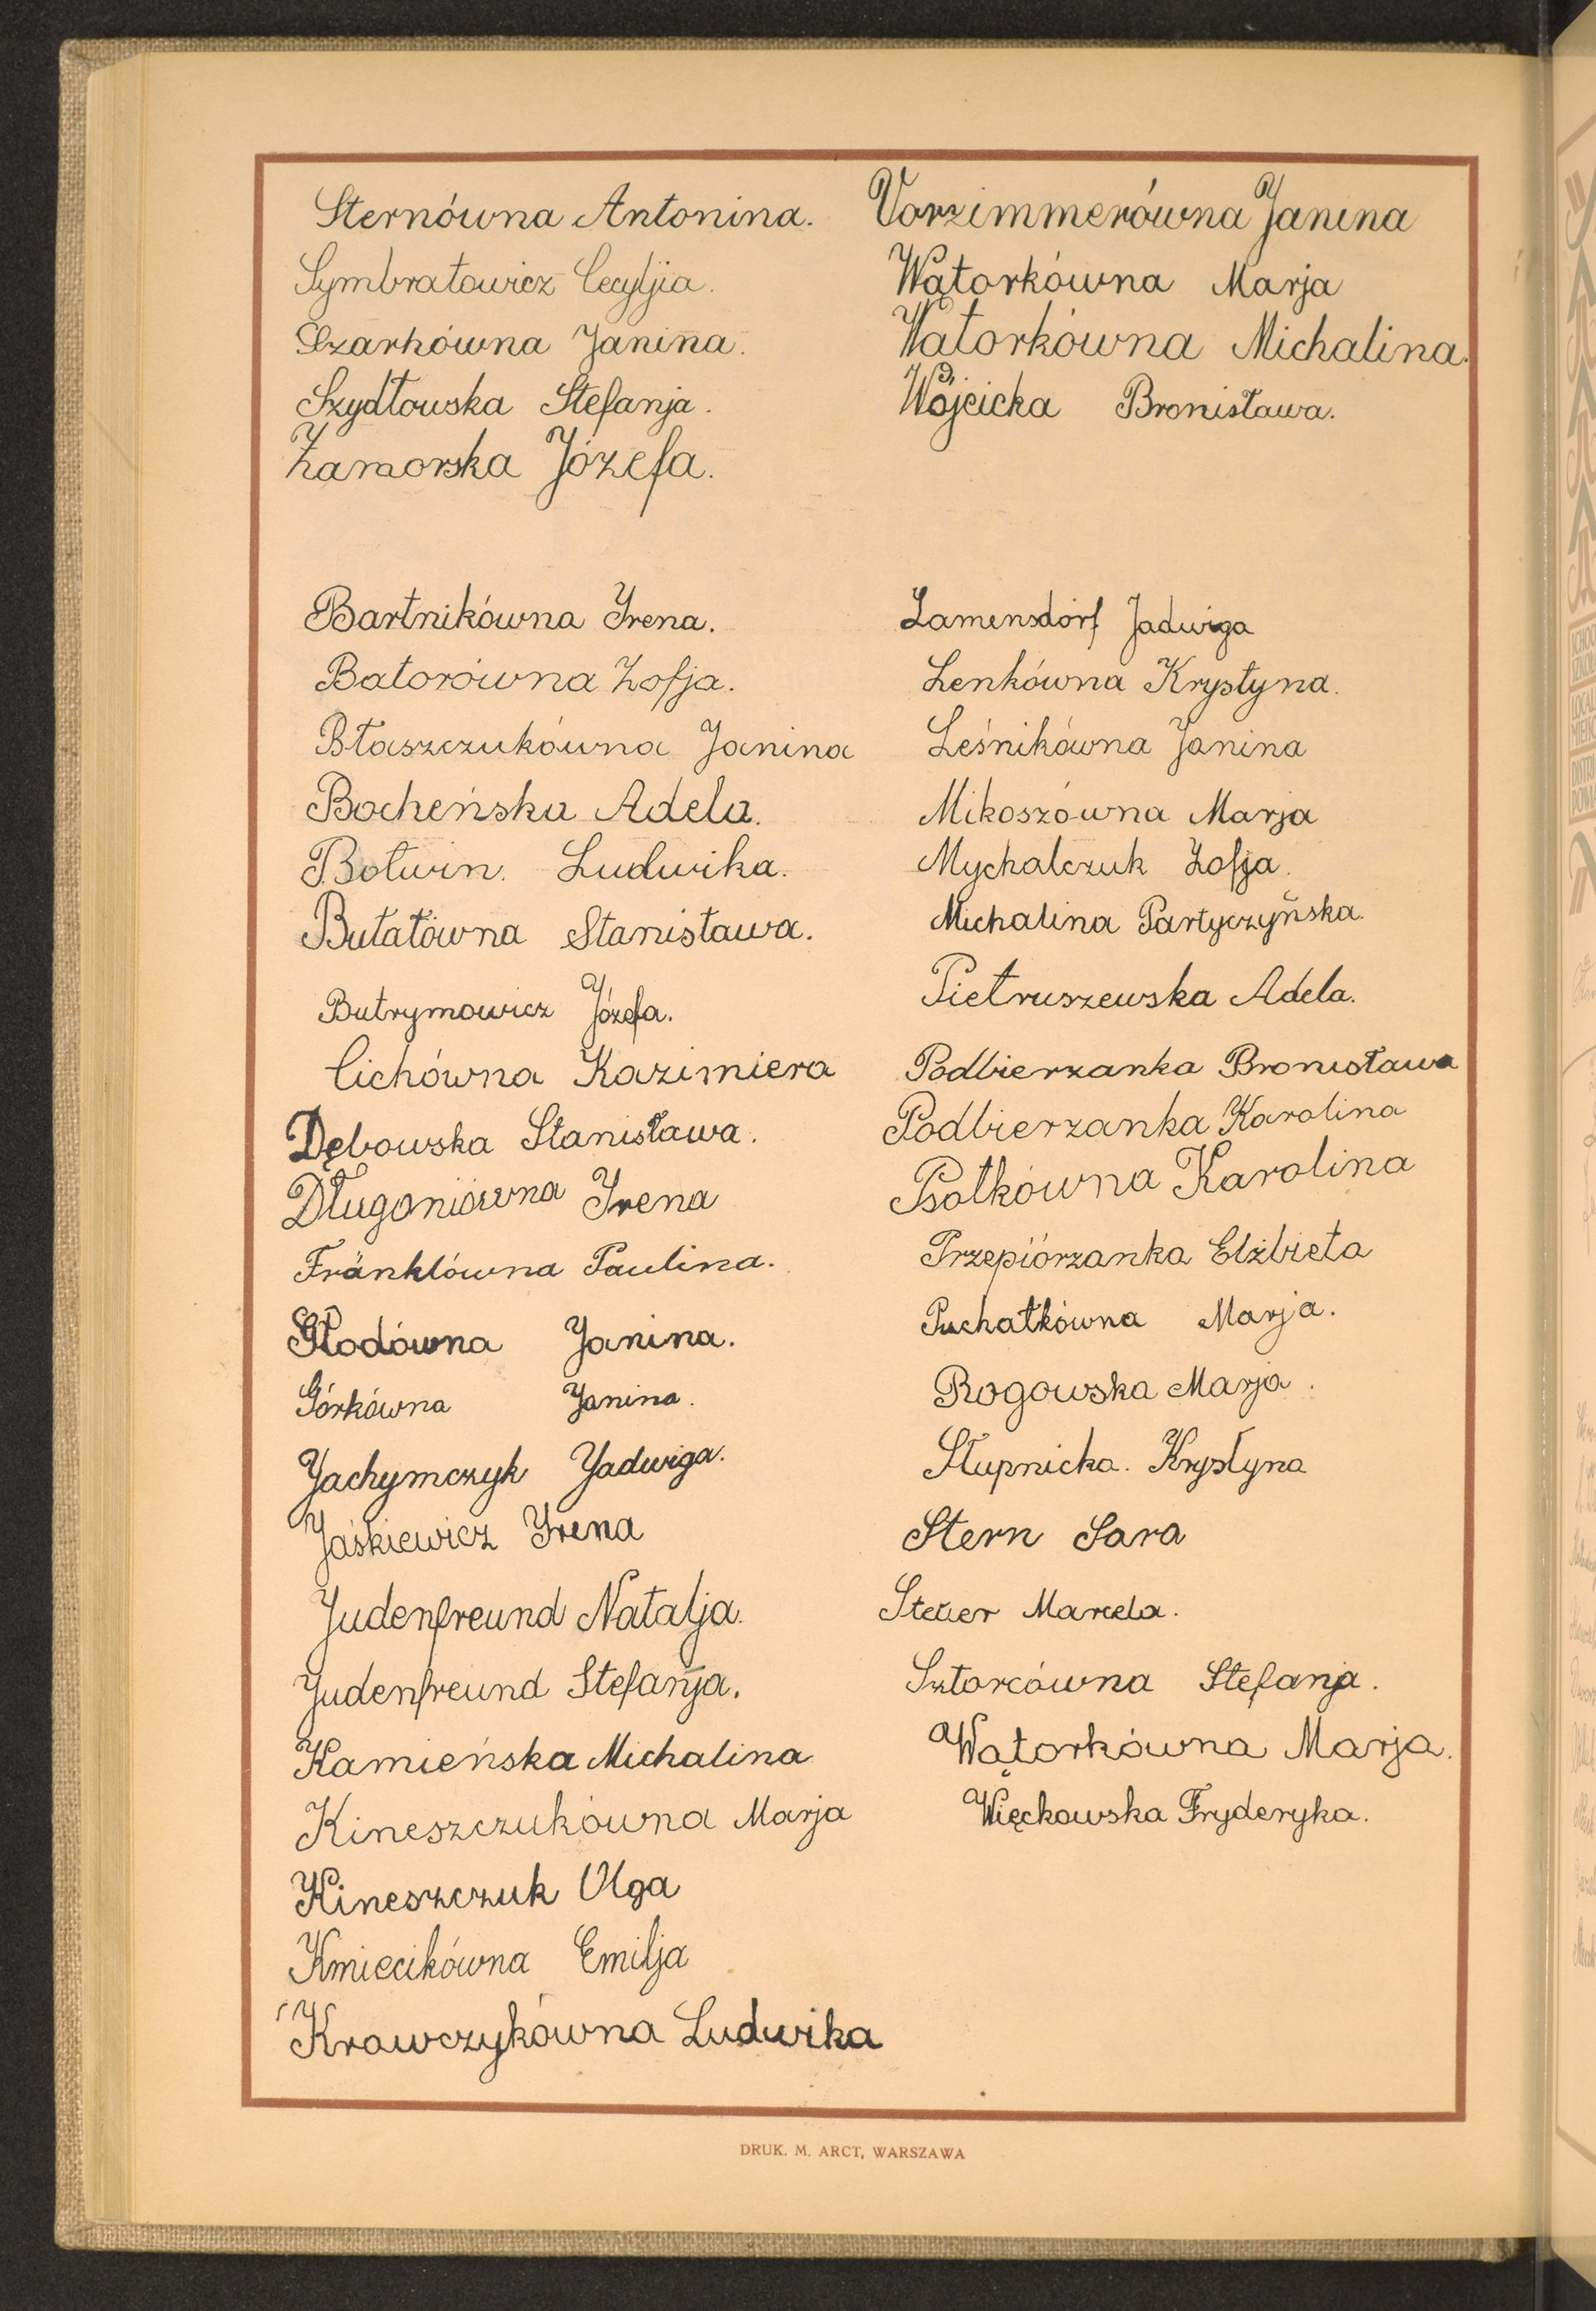 Sternówna Antonina.
Symbratowicz Cecyljia.
Szarkówna Janina.
Szydłowska Stefanja.
Zamorska Józefa.
Vorzimmerówna Janina
Wątorkówna Marja
Wątorkówna Michalina.
Wójcicka Bronisława.
Bartnikówna Irena.
Batorówna Zofja.
Błaszczukówna Janina
Bocheńska Adela.
Botwin. Ludwika.
Bułatówna Stanisława.
Butrymowicz Józefa.
Cichówna Kazimiera
Dębowska Stanisława.
Długoniówna Irena
Fränklówna Paulina.
Głodówna Janina.
Górkówna Janina.
Jachymczyk Jadwiga.
Jaśkiewicz Irena
Judenfreund Natalja.
Judenfreund Stefanja.
Kamieńska Michalina
Kineszczukówna Marja
Kineszczuk Olga
Kmiecikówna Emilja
Krawczykówna Ludwika
Lamensdorf Jadwiga
Lenkówna Krystyna.
Leśnikówna Janina
Mikoszówna Marja
Mychalczuk Zofja.
Michalina Partyczyńska.
Pietruszewska Adela.
Podbierzanka Bronisława
Podbierzanka Karolina
Psotkówna Karolina
Przepiórzanka Elżbieta
Puchatkówna Marja.
Rogowska Marja.
Słupnicka. Krystyna
Stern Sara
Steuer Marcela.
Sztorcówna Stefanja.
Wątorkówna Marja.
Więckowska Fryderyka.
DRUK. M. ARCT, WARSZAWA